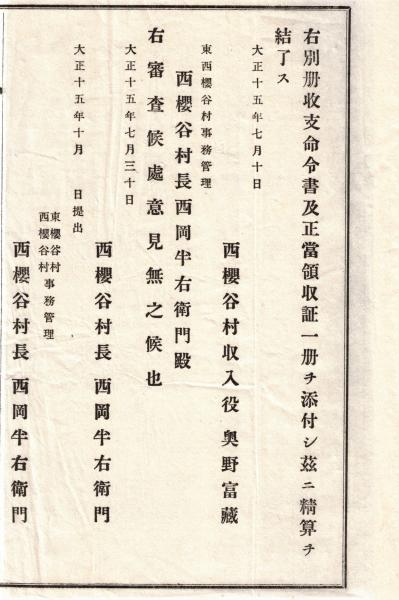 右別册收支命令書及正當領収証一册ヲ添付シ茲ニ精算ヲ
結了ス
大正十五年七月十日
西櫻谷村収入役 奥野富藏
東西櫻谷村事務管理
西櫻谷村長西岡半右衛門殿
右審査候處意見無之候也
大正十五年七月三十日
西櫻谷村長 西岡半右衛門
大正十五年十月 日提出
東櫻谷村
西櫻谷村
事務管理
西櫻谷村長 西岡半右衛門